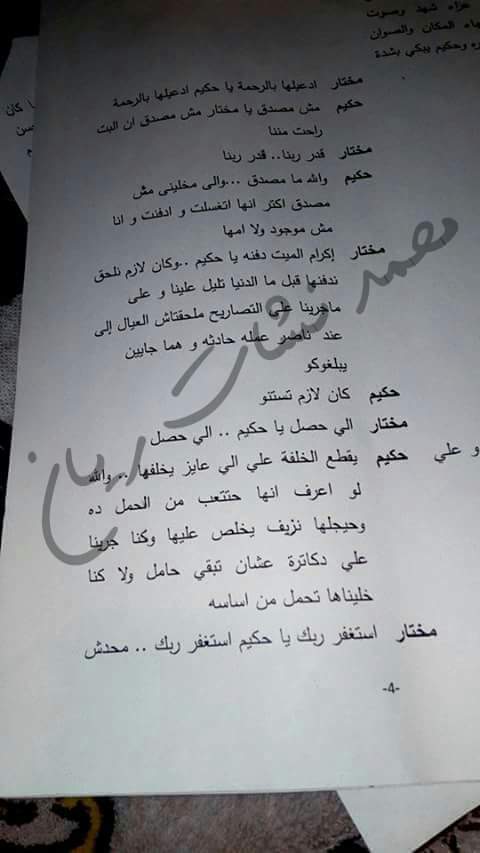 عزاء شهد وصوت
المكان والصوان
وحكيم يبكي بشدة
مختار ادعيلها بالرحمة يا حكيم ادعيلها بالرحمة
حكيم مش مصدق يا مختار مش مصدق ان البت
راحت مننا
مختار قدر ربنا.. قدر ربنا
حكيم والله ما مصدق ...والى مخلينى مش
مصدق اكتر انها اتغسلت و ادفنت و انا
مش موجود ولا امها
مختار إكرام الميت دفنه يا حكيم ..وكان لازم نلحق
ندفنها قبل ما الدنيا تليل علينا و على
ماجرينا علي التصاريح ملحقتاش العيال إلى
عند ناصر عمله حادثه و هما جايين
يبلغوكو
حكيم كان لازم تستنو
مختار الي حصل يا حكيم .. الي حصل
حكيم يقطع الخلفة علي الي عايز يخلفها .. والله
لو اعرف انها حتتعب من الحمل ده
وحيجلها نزيف يخلص عليها وكنا جرينا
علي دكاترة عشان تبقي حامل ولا كنا
خليناها تحمل من اساسه
مختار استغفر ربك يا حكيم استغفر ربك .. محدش
-4-
و علي
محمد نشات ريان